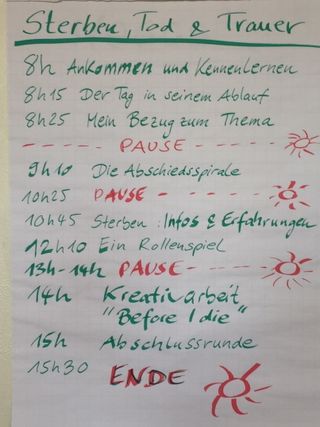 Sterben, Tod & Trauer
8h Ankommen und Kennenlernen
8h15 Der Tag in seinem Ablauf
8h25 Mein Bezug zum Thema
PAUSE
9h10 Die Abschiedsspirale
10h25 PAUSE
10h45 Sterben: Infos & Erfahrungen
12h10 Ein Rollenspiel
13h-14h PAUSE
14h Kreativarbeit
"Before I die"
15h Abschlussrunde
15h30 ENDE